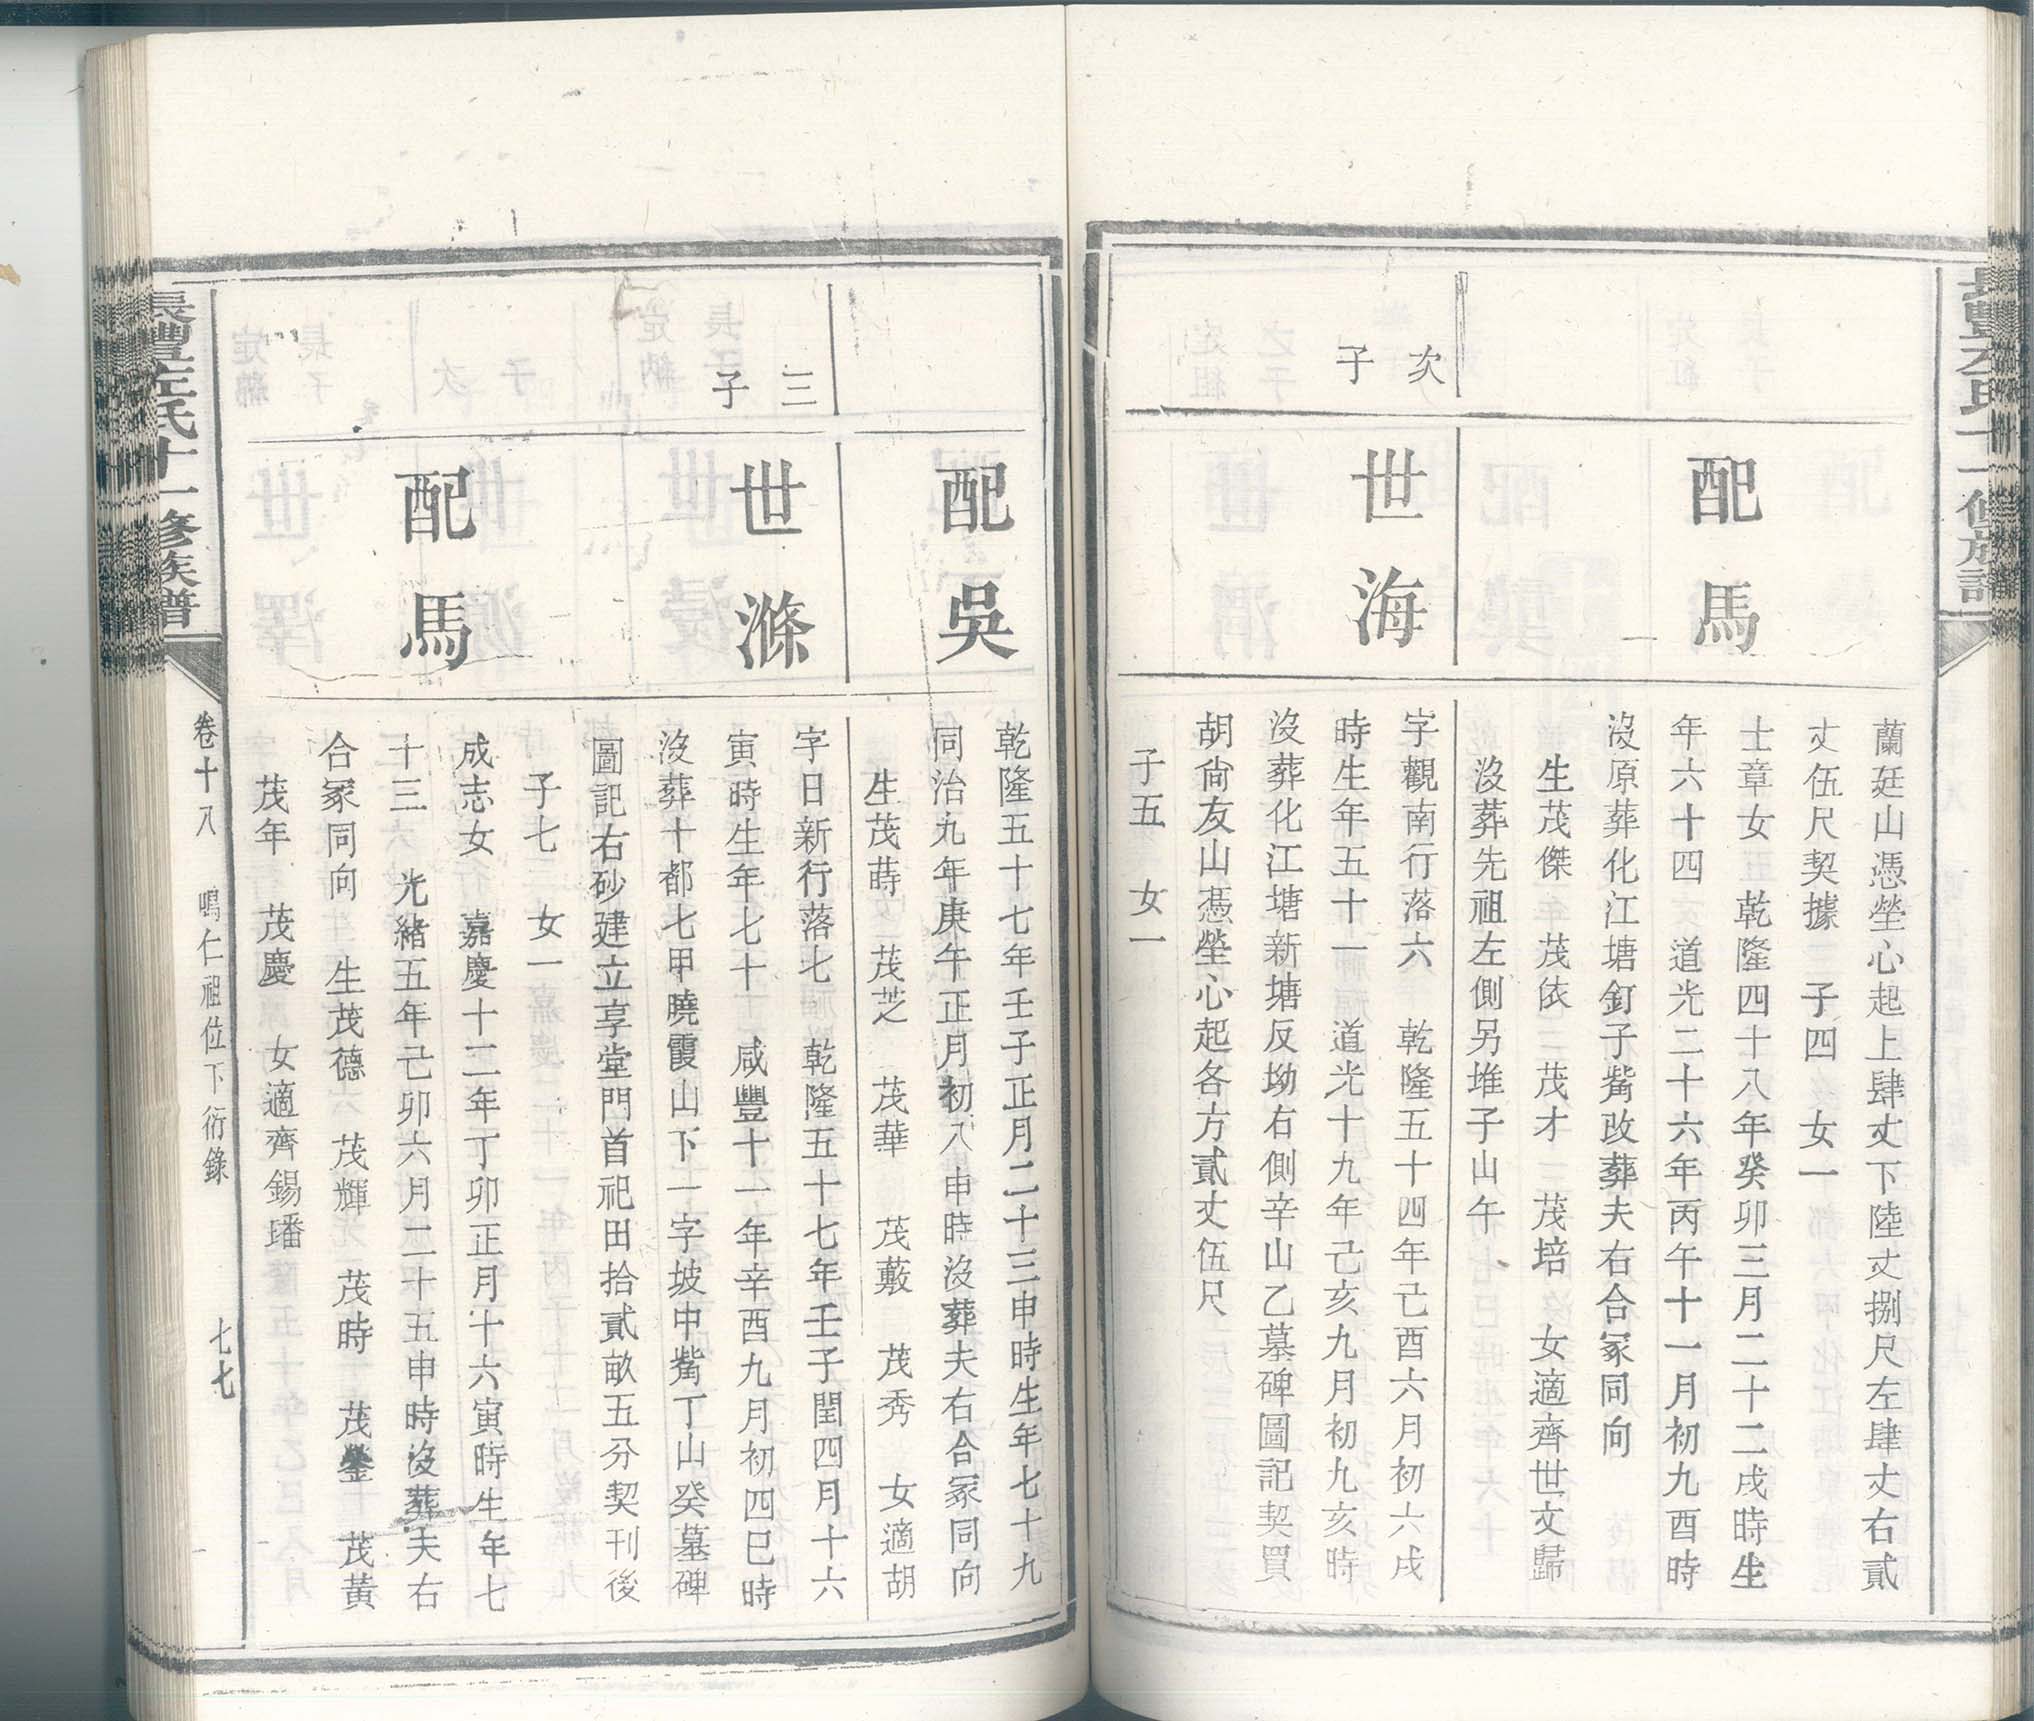 蘭廷山憑塋心起上肆丈下陸丈捌尺左肆丈右貳
丈伍尺契據 子四 女一
配馬
士章女 乾隆四十八年癸卯三月二十二戌時生
年六十四 道光二十六年丙午十一月初九酉時
沒原葬化江塘釘子觜改葬夫右合冢同向
生茂傑 茂依 茂才 茂培 女適齊世文歸
沒葬先祖左側另堆子山午
次子
世海
字觀南行落六 乾隆五十四年己酉六月初六戌
時生年五十一 道光十九年己亥九月初九亥時
沒葬化江塘新塘反坳右側辛山乙墓碑圖記契買
胡尙友山憑塋心起各方貳丈伍尺
子五 女一
配吳
乾隆五十七年壬子正月二十三申時生年七十九
同治九年庚午正月初八申時沒葬夫右合冢同向
生茂蒔 茂芝 茂華 茂藙 茂秀 女適胡
三子
世滌
字日新行落七 乾隆五十七年壬子閏四月十六
寅時生年七十 咸豐十一年辛酉九月初四巳時
沒葬十都七甲曉霞山下一字坡中觜丁山癸墓碑
圖記右砂建立享堂門首祀田拾貳畝五分契刊後
子七 女一
配馬
成志女 嘉慶十二年丁卯正月十六寅時生年七
十三 光緒五年己卯六月二十五申時沒葬夫右
合冢同向 生茂德 茂輝 茂時 茂鎣 茂黃
茂年 茂慶 女適齊錫璠
長豐左氏十一修族譜
卷十八 鳴仁祖位下衍錄 七七